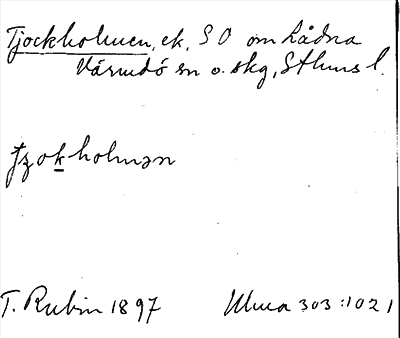 Tjockholmen, ek, SO om Lådna
Värmdö sn o. skg, Sthms l.
holmən
T. Rubin 1897 Ulma 303:1021